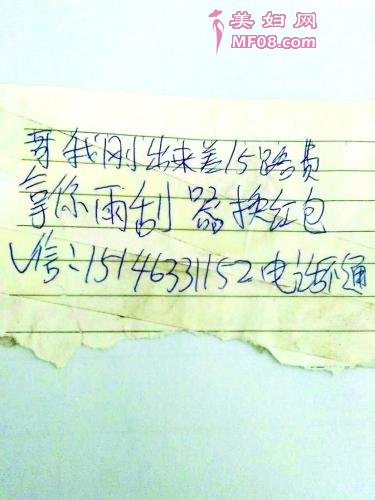 美妇网
MF08.com
哥我刚出来差15路费
拿你雨刮器换红包
V信:15146331152电话不通